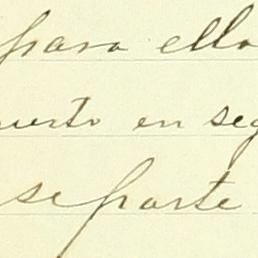 para ello
uerto en seg
se parte